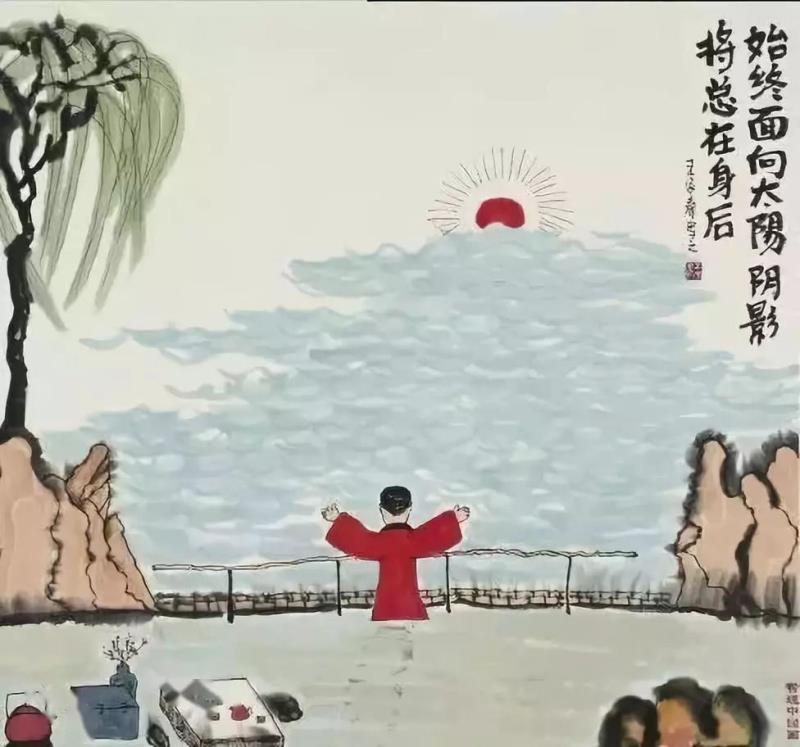 始终面向太陽 阴影
将总在身后
王家春写之